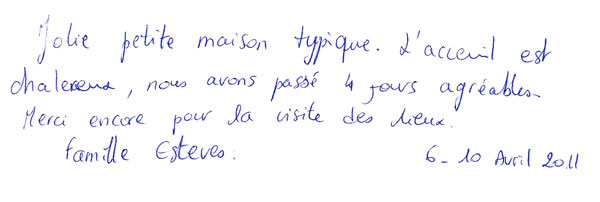 Jolie petite maison typique. L'acceuil est
chalereux, nous avons passé 4 jours agréables.
Merci encore pour la visite des lieux.
Famille Esteves.
6-10 Avril 2011